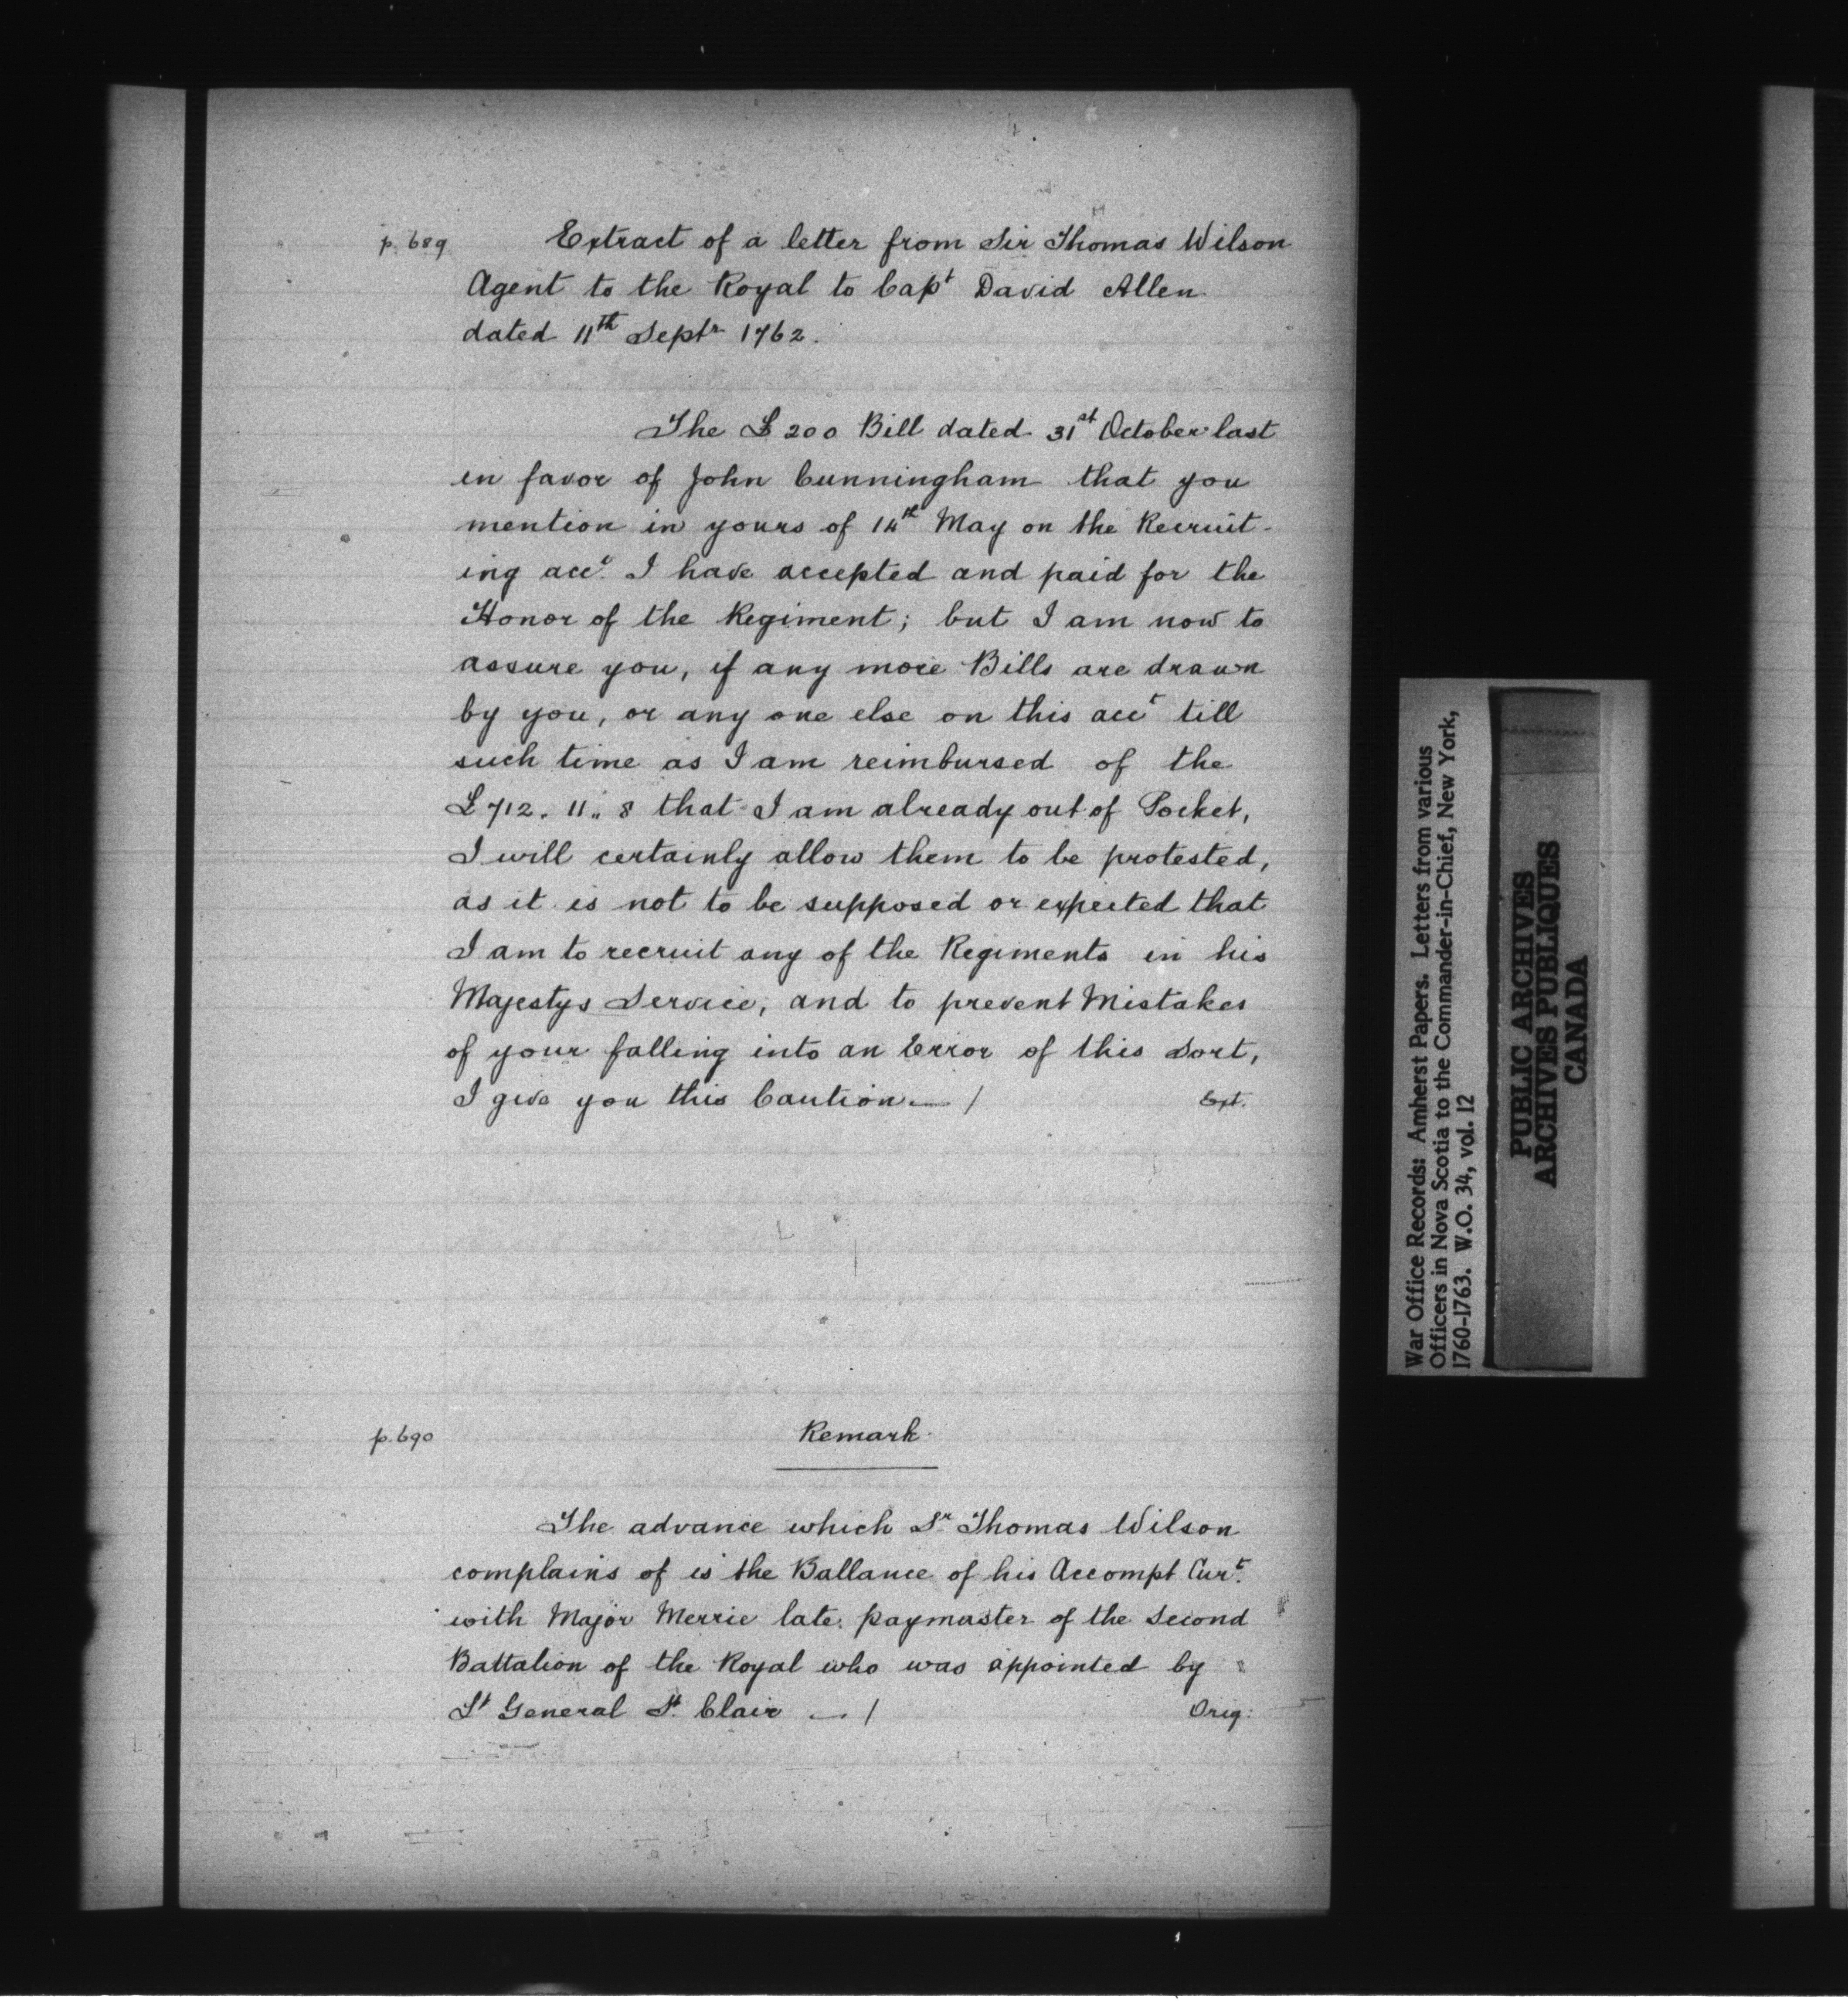 p. 689 Extract of a letter from Sir Thomas Wilson
Agent to the Royal to Capt David Allen
dated 11th Septr 1762.
The £200 Bill dated 31st October last
in favor of John Cunningham that you
mention in yours of 14th May on the Recruit-
ing acct. I have accepted and paid for the
Honor of the Regiment; but I am now to
assure you, if any more Bills are drawn
by you, or any one else on this acct till
such time as I am reimbursed of the
£712. 11.. 8 that I am already out of Pocket,
I will certainly allow them to be protested,
as it is not to be supposed or expected that
I am to recruit any of the Regiments in his
Majestys Service, and to prevent Mistakes
of your falling into an Error of this Sort,
I give you this Caution. — / Ext.
p. 690 Remark
The advance which Sr Thomas Wilson
complains of is the Ballance of his Accompt Curt.
with Major Merrie late paymaster of the Second
Battalion of the Royal who was appointed by
Lt General St. Clair — / Orig:
War Office Records: Amherst Papers. Letters from various
Officers in Nova Scotia to the Commander-in-Chief, New York,
1760-1763. W.O. 34, vol. 12
PUBLIC ARCHIVES
ARCHIVES PUBLIQUES
CANADA